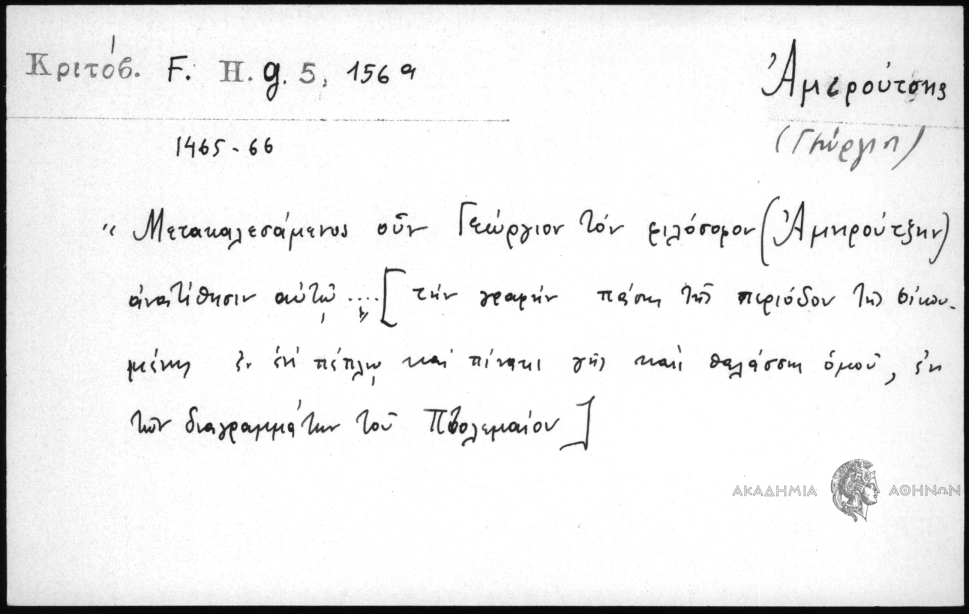 Κριτόβ. F. H. g. 5, 156 a
Ἀμιρούτσης
1465-66
(Γεώργιος)
"Μετακαλεσάμενος οὖν Γεώργιον τὸν φιλόσοφον (Ἀμηρούτζην)
ἀνατίθησιν αὐτῷ ....[ τὴν γραφὴν πάσης τῆς περιόδου τῆς οἰκου-
μένης ἐν ἑνὶ πέπλῳ καὶ πίνακι γῆς καὶ θαλάσσης ὁμοῦ, ἐκ
τῶν διαγραμμάτων τοῦ Πτολεμαίου]
ΑΚΑΔΗΜΙΑ ΑΘΗΝΩΝ